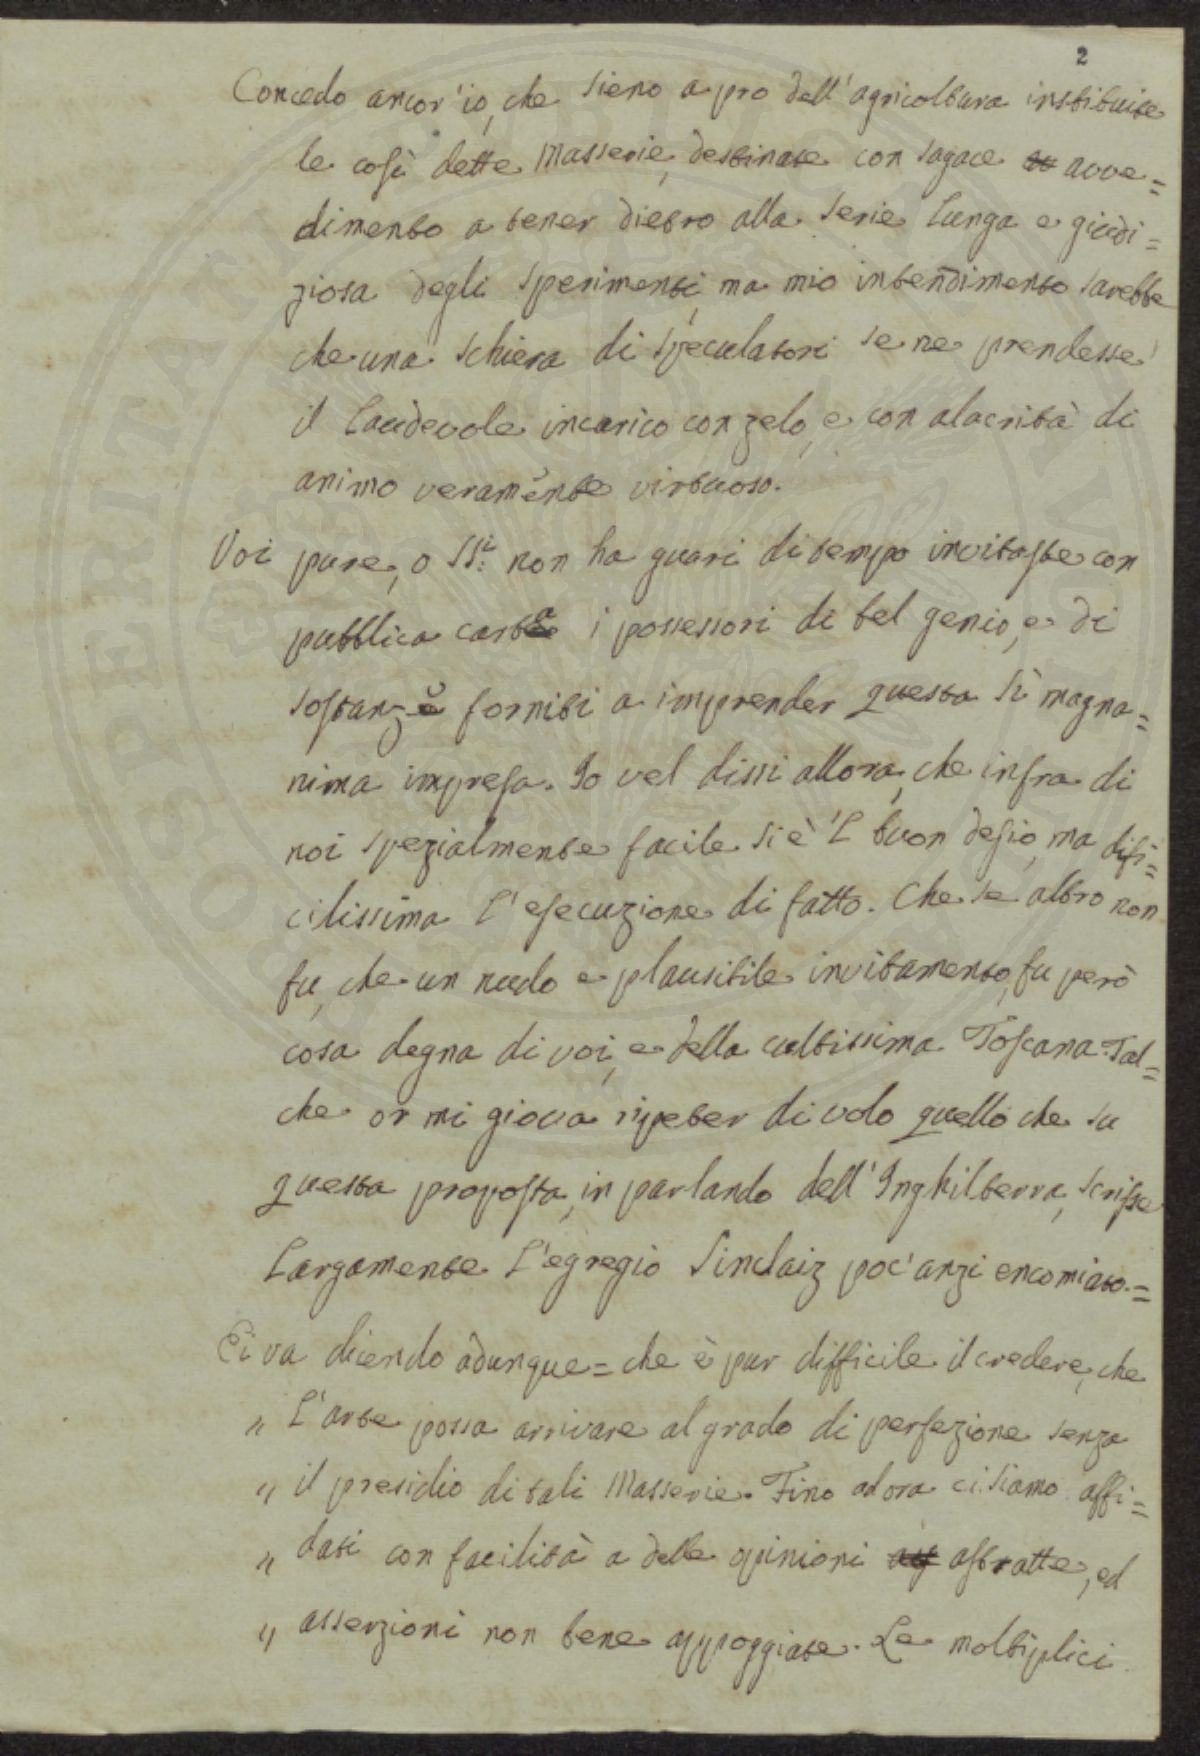 2
Concedo ancor'io, che sieno a pro dell'agricoltura instituite
le così dette Masserie, destinate con sagace avve=
dimento a tener dietro alla serie lunga e giudi=
ziosa degli sperimenti, ma mio intendimento sarebbe
che una schiera di speculatori se ne prendesse
il laudevole incarico con zelo, e con alacrità di
animo veramente virtuoso.
Voi pure, o SS.i non ha guari di tempo invitaste con
pubblica carta i possessori di bel genio, e di
sostanze forniti a imprender questa sì magna=
nima impresa. Io vel dissi allora, che infra di
noi spezialmente facile si è 'l buon desio, ma difi=
cilissima l'esecuzione di fatto. Che se altro non
fu, che un nudo e plausibile invitamento, fu però
cosa degna di voi, e della cultissima Toscana. Tal=
che or mi giova ripeter di volo quello che su
questa proposta, in parlando dell'Inghilterra, scrisse
largamente l'egregio Sinclaiz poc'anzi encomiato.=
Ei va dicendo adunque= che è pur difficile il credere, che
„ l'arte possa arrivare al grado di perfezione senza
„ il presidio di tali Masserie. Fino ad ora ci siamo affi=
„ dati con facilità a delle opinioni astratte, ed
„ asserzioni non bene appoggiate. Le moltiplici